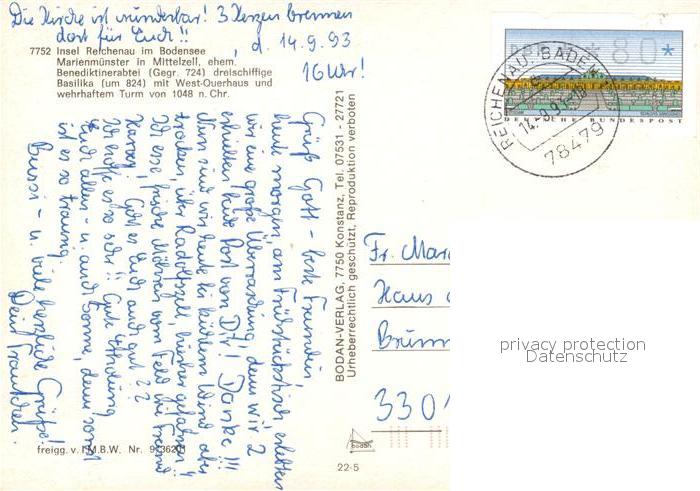 Die Kirche ist wunderbar! 3 Kerzen brennen
dort für Euch!!
, d. 14.9.93
16 Uhr!
7752 Insel Reichenau im Bodensee
Marienmünster in Mittelzell, ehem.
Benediktinerabtei (Gegr. 724) dreischiffige
Basilika (um 824) mit West-Querhaus und
wehrhaftem Turm von 1048 n. Chr.
*80*
DEUTSCHE BUNDESPOST
REICHENAU, BADEN
78479
Grüß Gott - beste Freundin,
heute morgen, am Frühstückstisch erlebten
wir eine große Überraschung, denn wir 2
erhielten beide Post von Dir! Danke!!!
Nun sind wir heute bei kühlem Wind aber
trocken über Radolfzell, hierher gefahren!
Ich esse frische Möhren vom Feld die Freund
Geht es Euch auch gut??
Ich hoffe es so sehr!! Gute
Euch allen - u. auch Sonne, denn sonst
ist es so traurig.
Bussi - u. viele herzliche Grüße!
Dein
BODAN-VERLAG, 7750 Konstanz, Tel. 07531 - 27721
Urheberrechtlich geschützt, Reproduktion verboten
Fr.
Haus
330
privacy protection
Datenschutz
freigg. v. I.M.B.W. Nr.
bodan
22-5